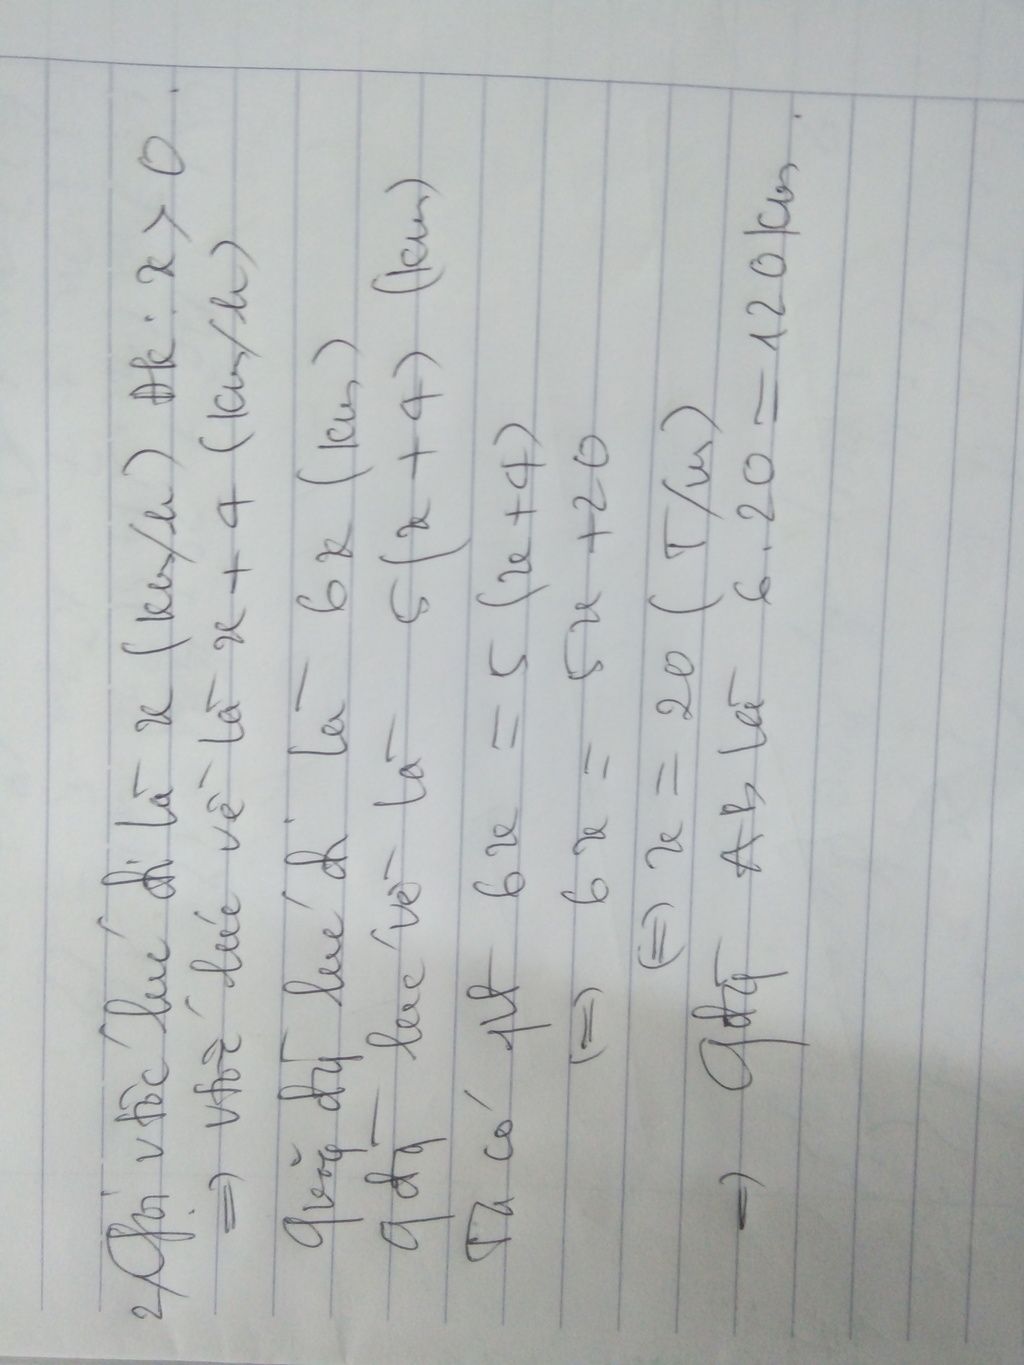 2, Gọi vtốc lúc đi là x (km/h) Đk: x > 0.
=> vtốc lúc về là x + 4 (km/h)
Quãg đg lúc đi là 6x (km)
Qđg lúc về là 5(x + 4) (km)
Ta có pt 6x = 5(x+4)
<=> 6x = 5x + 20
<=> x = 20 (T/m)
=> Qđg AB là 6.20 = 120 km.